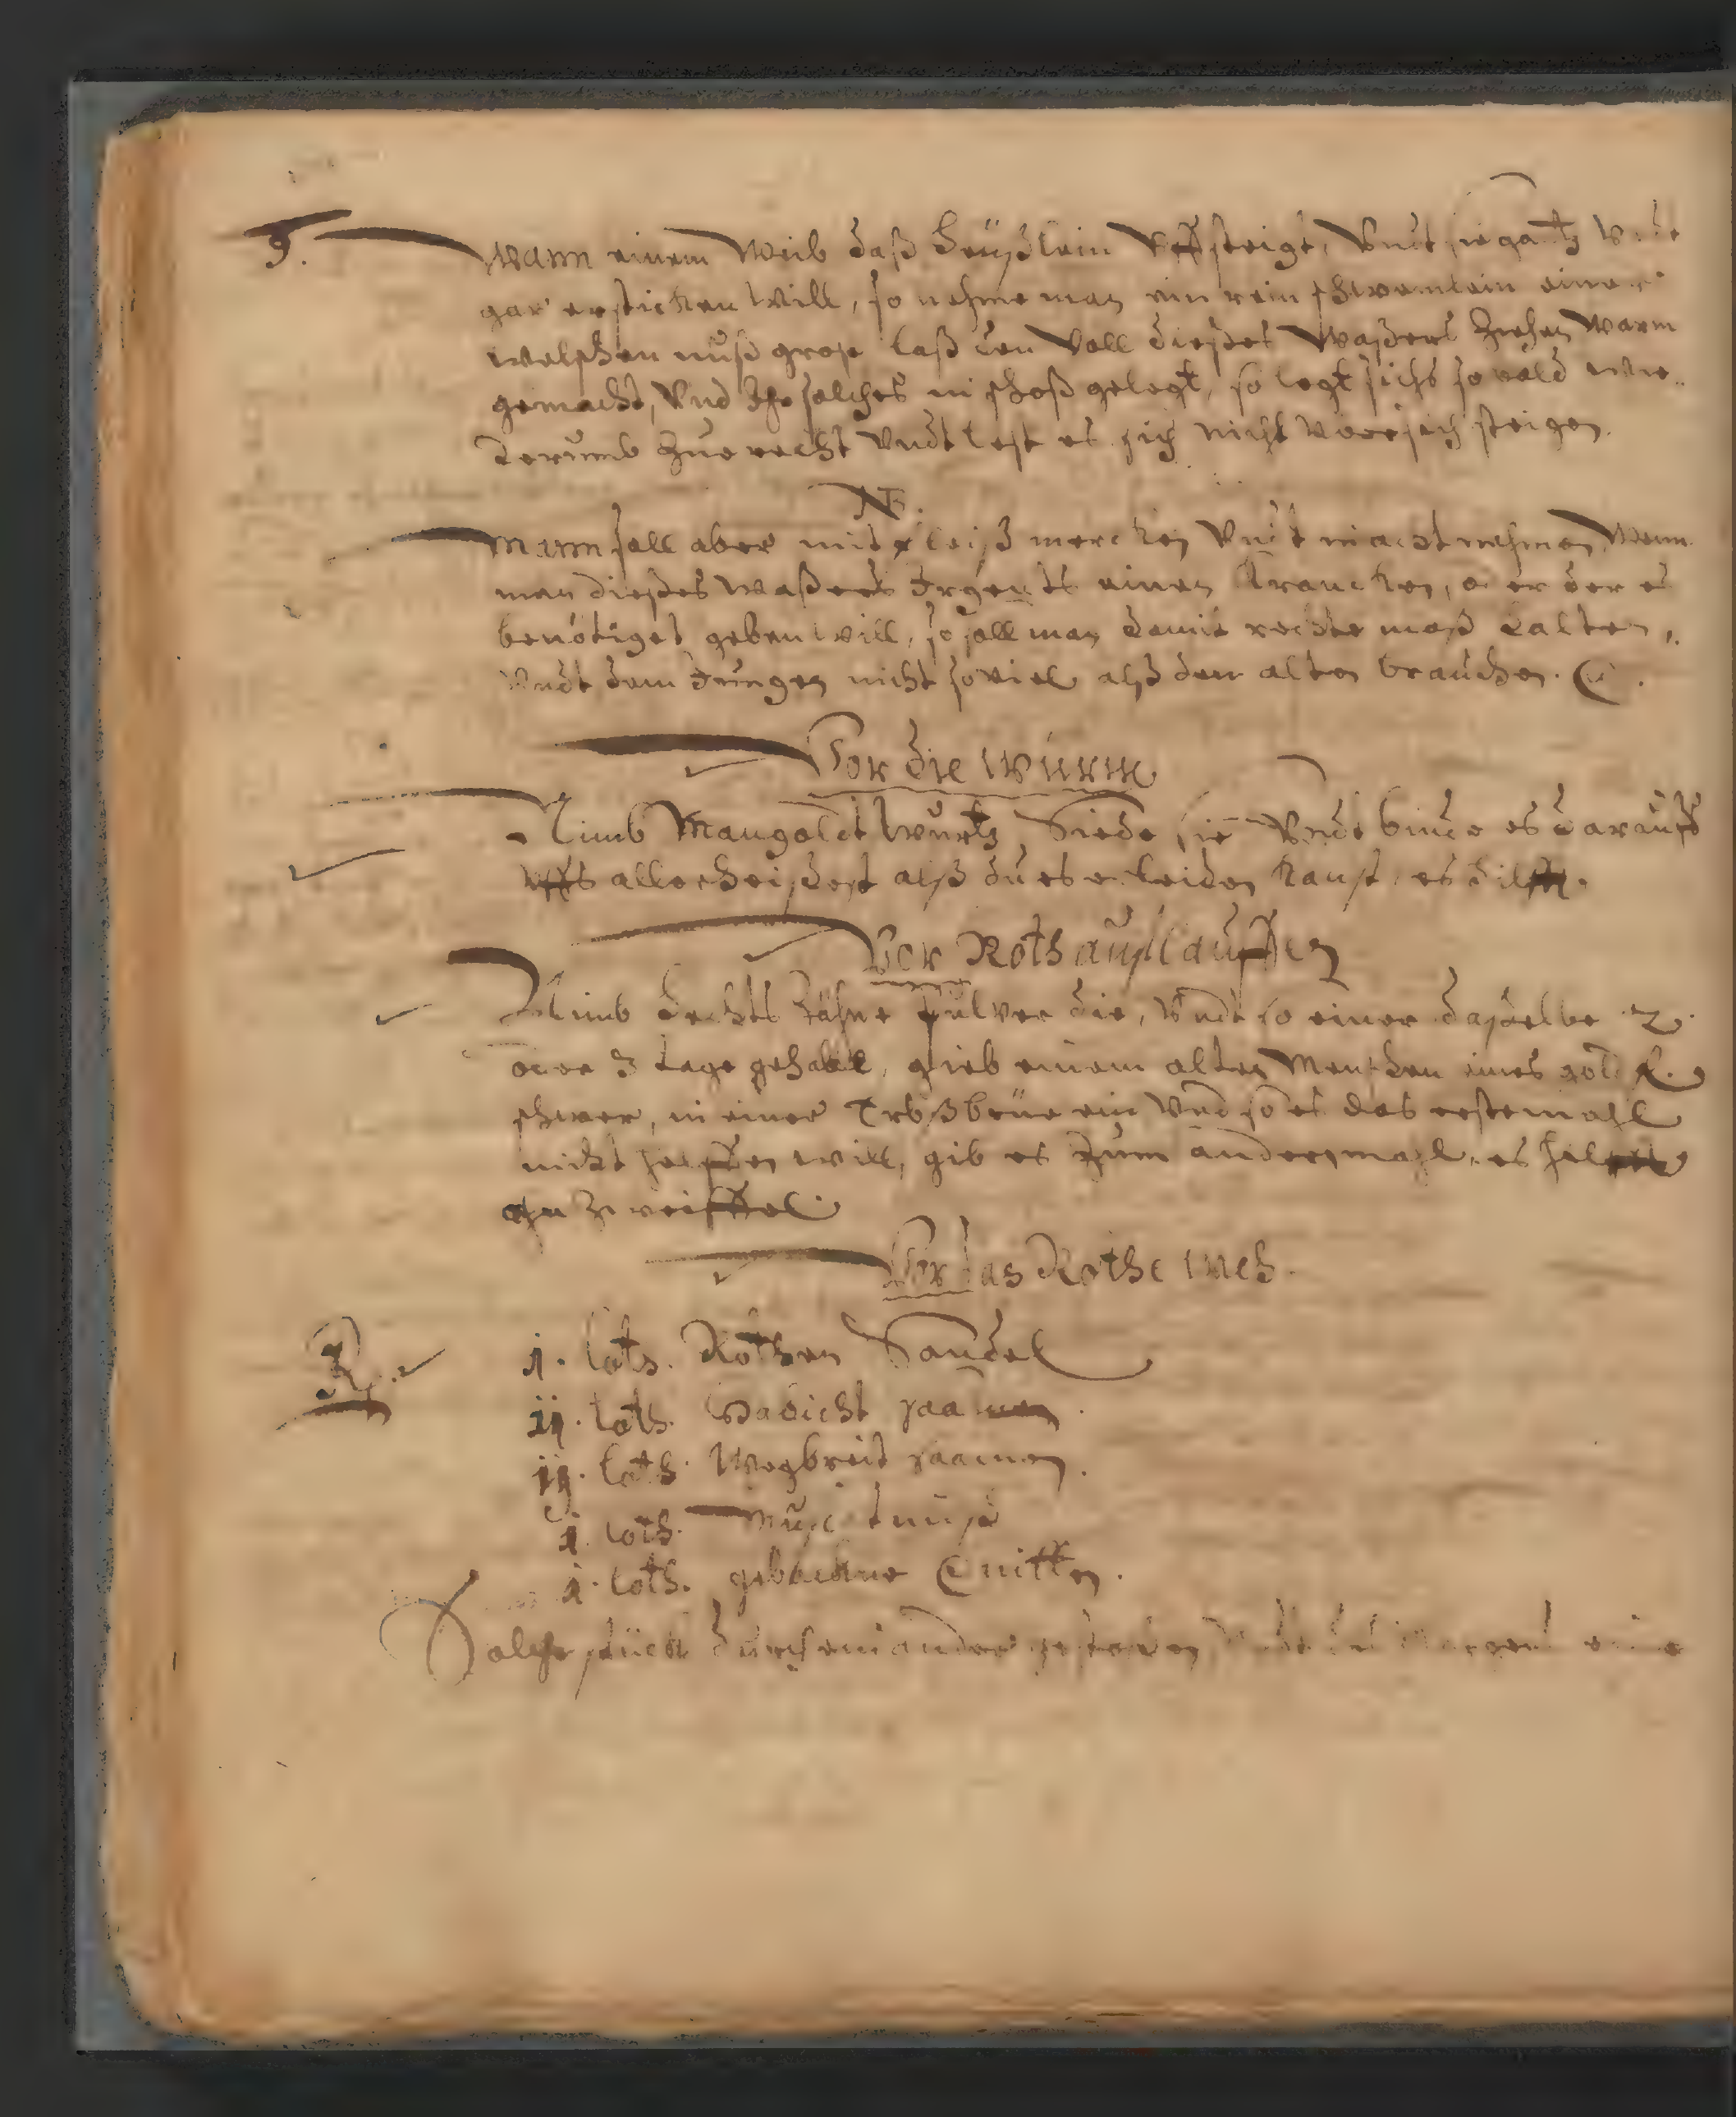 9. Wann einem Weib daß heüßlein Vffsteigt, Vndt sie gantz Vndt
gar ersticken will, so nehme man ein rein schwemlein einer
welschen nuß groß laß den Voll dießes Waßers ziehen Warm
gemacht, Vnd Ihr solches in schoß gelegt, so legt sichs so bald wie„
derumb zue recht Vndt lest es sich nicht Vber sich steigen.
NB.
Mann soll aber mit fleiß mercken Vndt in acht nehmen, Wenn
man dießes Waßers Irgents einen Krancken, oder der es
benötiget geben will, so soll man damit rechte maß halten,
Vndt dem Jungen nicht soviel alß den alten brauchen.
Vor die würm
Nimb Mangoldt Wurtz, Siede sie Vndt binde es darauff
Vffs allerheißest alß du es erleiden kanst, es hilfft.
Vor Roth außlauffen
Nimb hechts Zähne pulver die, Vndt so einer daßelbe 2.
oder 3 tage gehabt, gieb einem alten Menschen eines gold fl.
schwer, in einer Erbßbrüe ein Vnd so es das erstemahl
nicht helffen will, gib es zum andernmahl, es hilfft
ohn Zweiffel.
Vor das Rothe Weh.
℞. 1. loth. Rothen Sandel
ij. loth. saamen.
ij. loth. Wegbreit saamen.
1. loth. Muscatnuß
1. loth. gebackne Quitten.
Solche stück durch einander gestoßen, Vndt